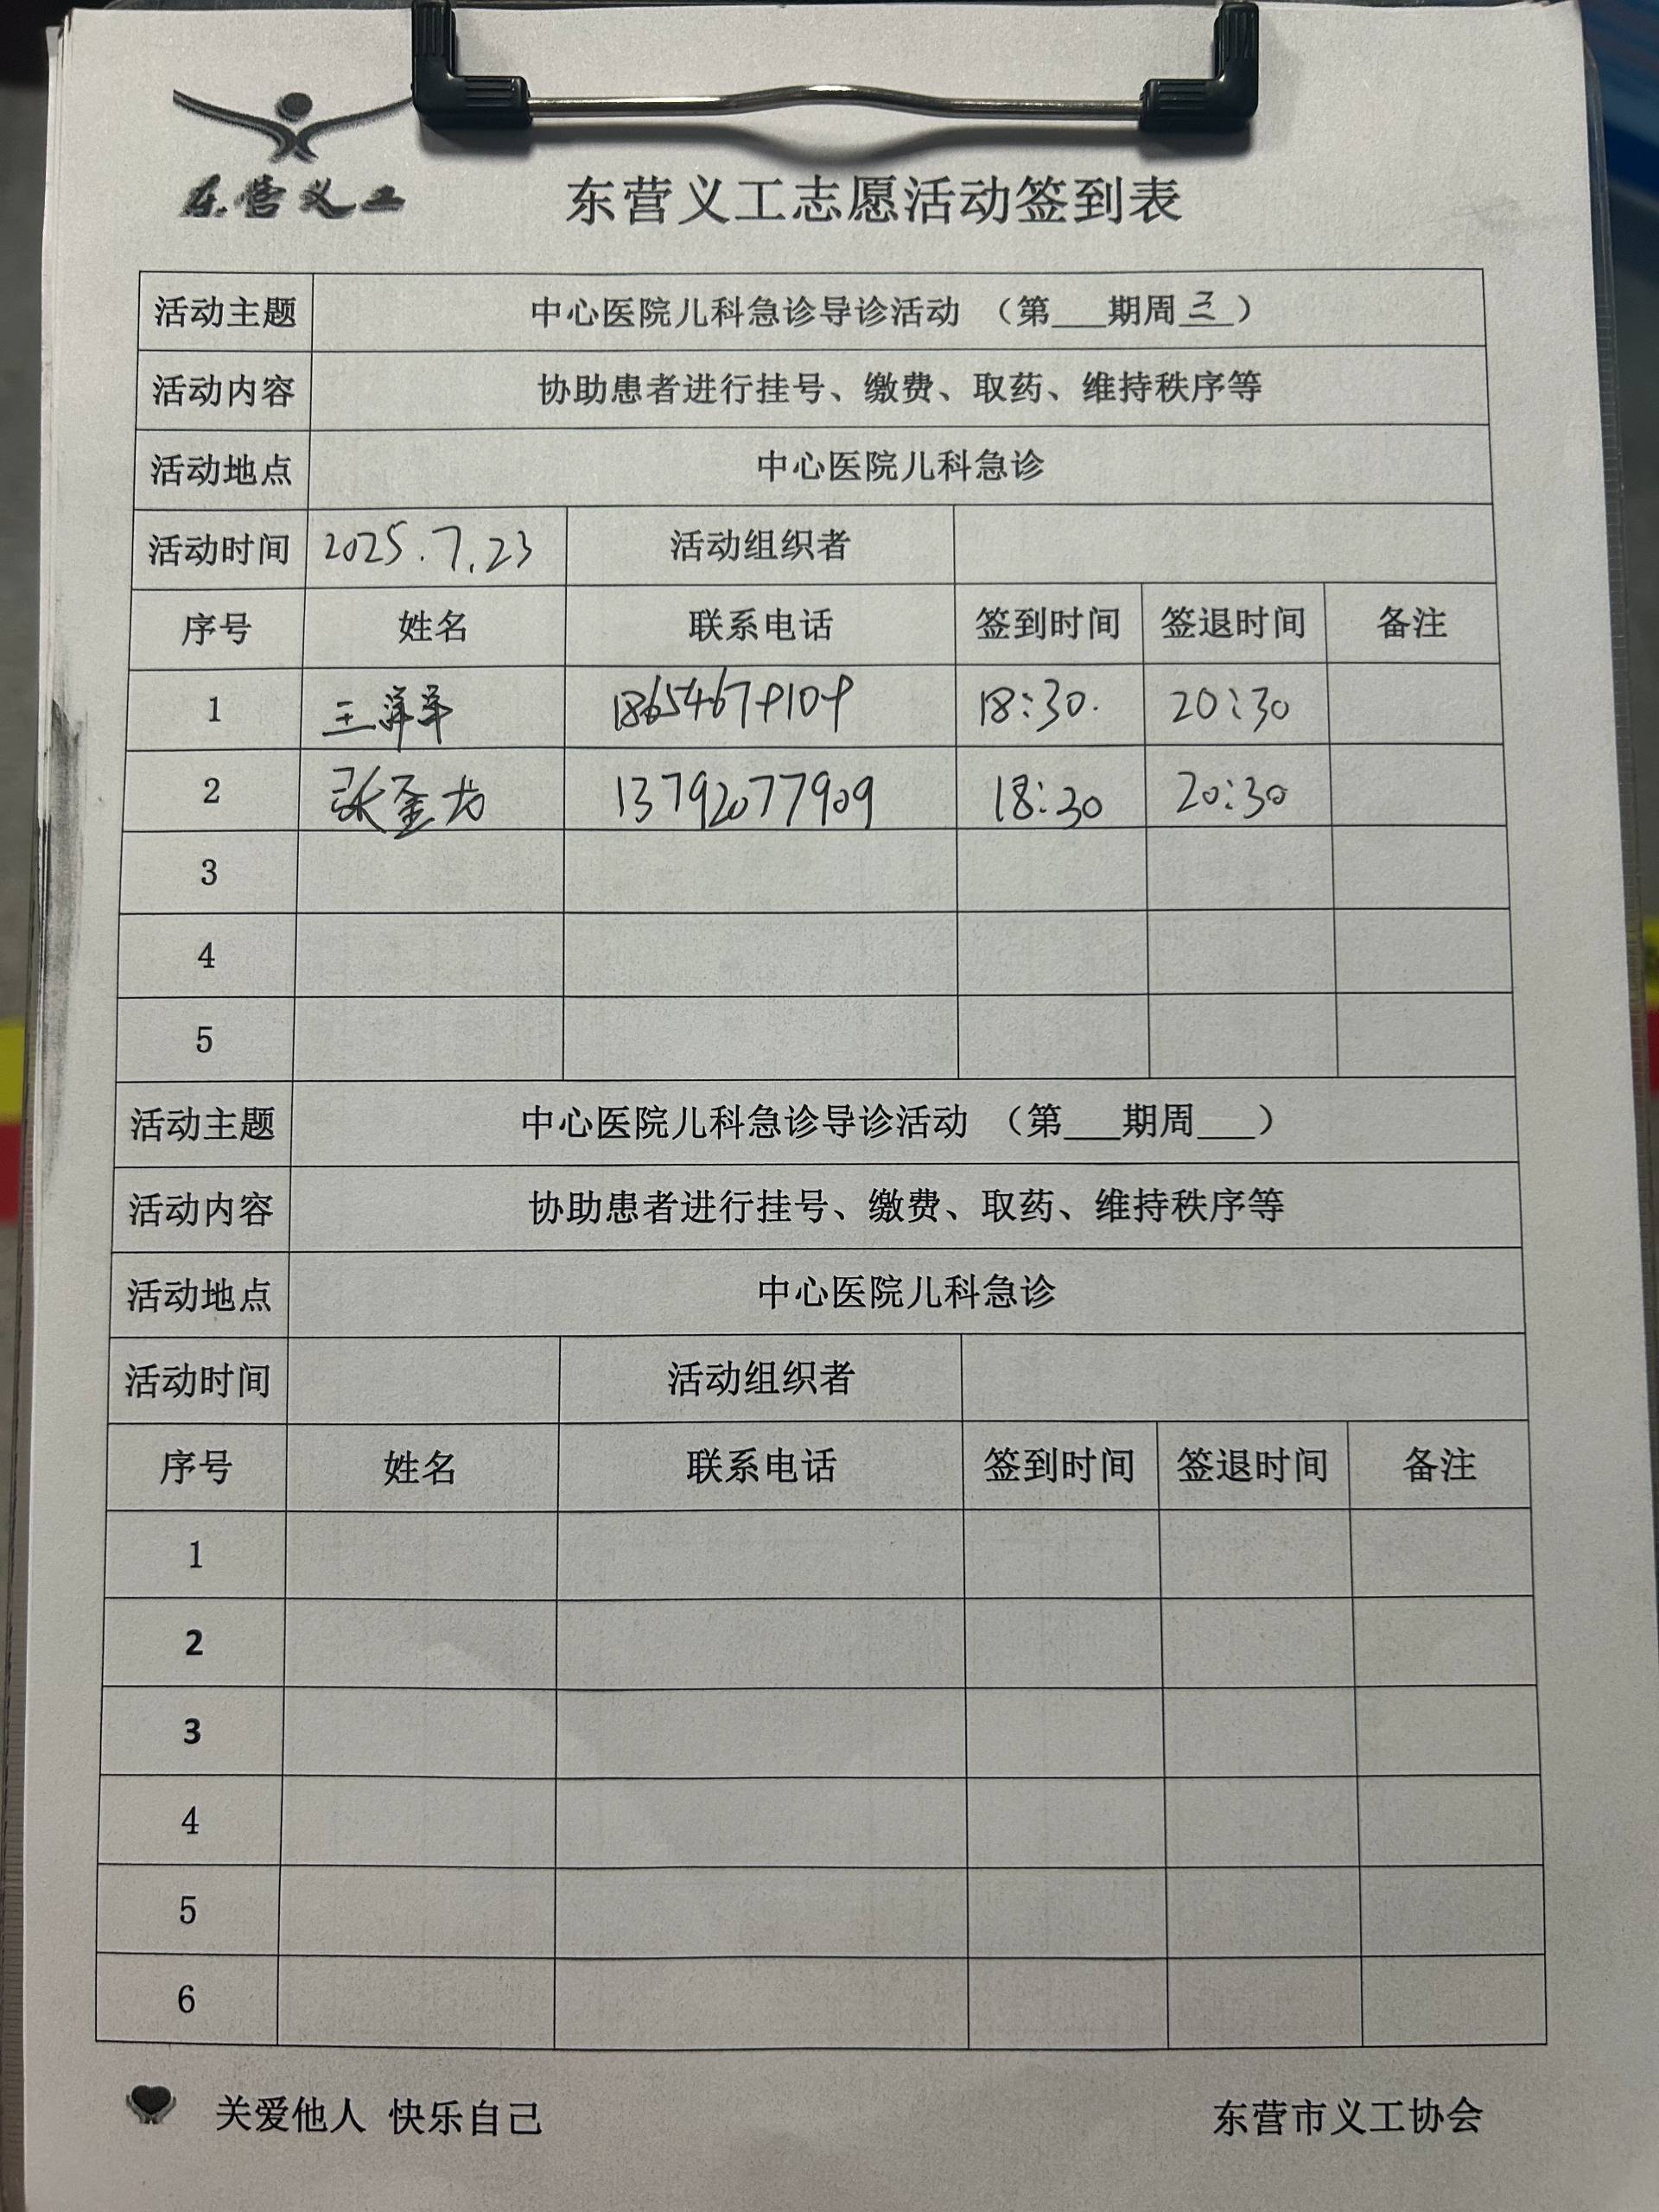 东营义工
东营义工志愿活动签到表
活动主题 中心医院儿科急诊导诊活动 （第___期周三）
活动内容 协助患者进行挂号、缴费、取药、维持秩序等
活动地点 中心医院儿科急诊
活动时间 2025.7.23 活动组织者
序号 姓名 联系电话 签到时间 签退时间 备注
1 王洋洋 18:30. 20:30
2 张 13792077909 18:30 20:30
3
4
5
活动主题 中心医院儿科急诊导诊活动 （第___期周___）
活动内容 协助患者进行挂号、缴费、取药、维持秩序等
活动地点 中心医院儿科急诊
活动时间 活动组织者
序号 姓名 联系电话 签到时间 签退时间 备注
1
2
3
4
5
6
关爱他人 快乐自己 东营市义工协会